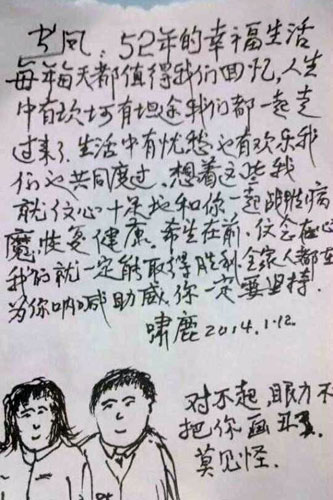 书凤：52年的幸福生活
每年每天都值得我们回忆，人生
中有坎坷有坦途我们都一起走
过来了．生活中有忧愁也有欢乐我
们也共同度过．想着这些我
就信心十足地和你一起战胜病
魔，恢复健康．希望在前，信念在心
我的就一定能取得胜利，全家人都在
为你呐喊助威，你一定要坚持．
啸鹿2014.1.12．
对不起，眼力不
把你画丑了．
莫见怪．